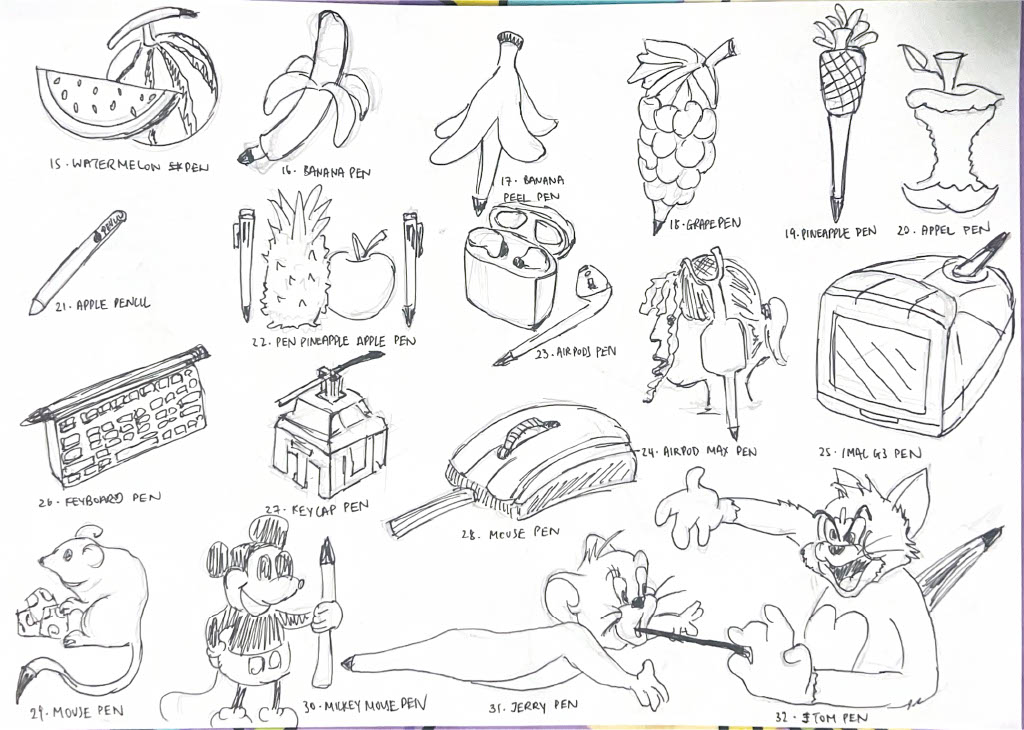 15. WATERMELON PEN
16. BANANA PEN
17. BANANA
PEEL PEN
18. GRAPE PEN
19. PINEAPPLE PEN
20. APPEL PEN
21. APPLE PENCIL
22. PEN PINEAPPLE APPLE PEN
23. AIRPODS PEN
24. AIRPOD MAX PEN
25. IMAC G3 PEN
26. KEYBOARD PEN
27. KEYCAP PEN
28. MOUSE PEN
29. MOUSE PEN
30. MICKEY MOUSE PEN
31. JERRY PEN
32. TOM PEN